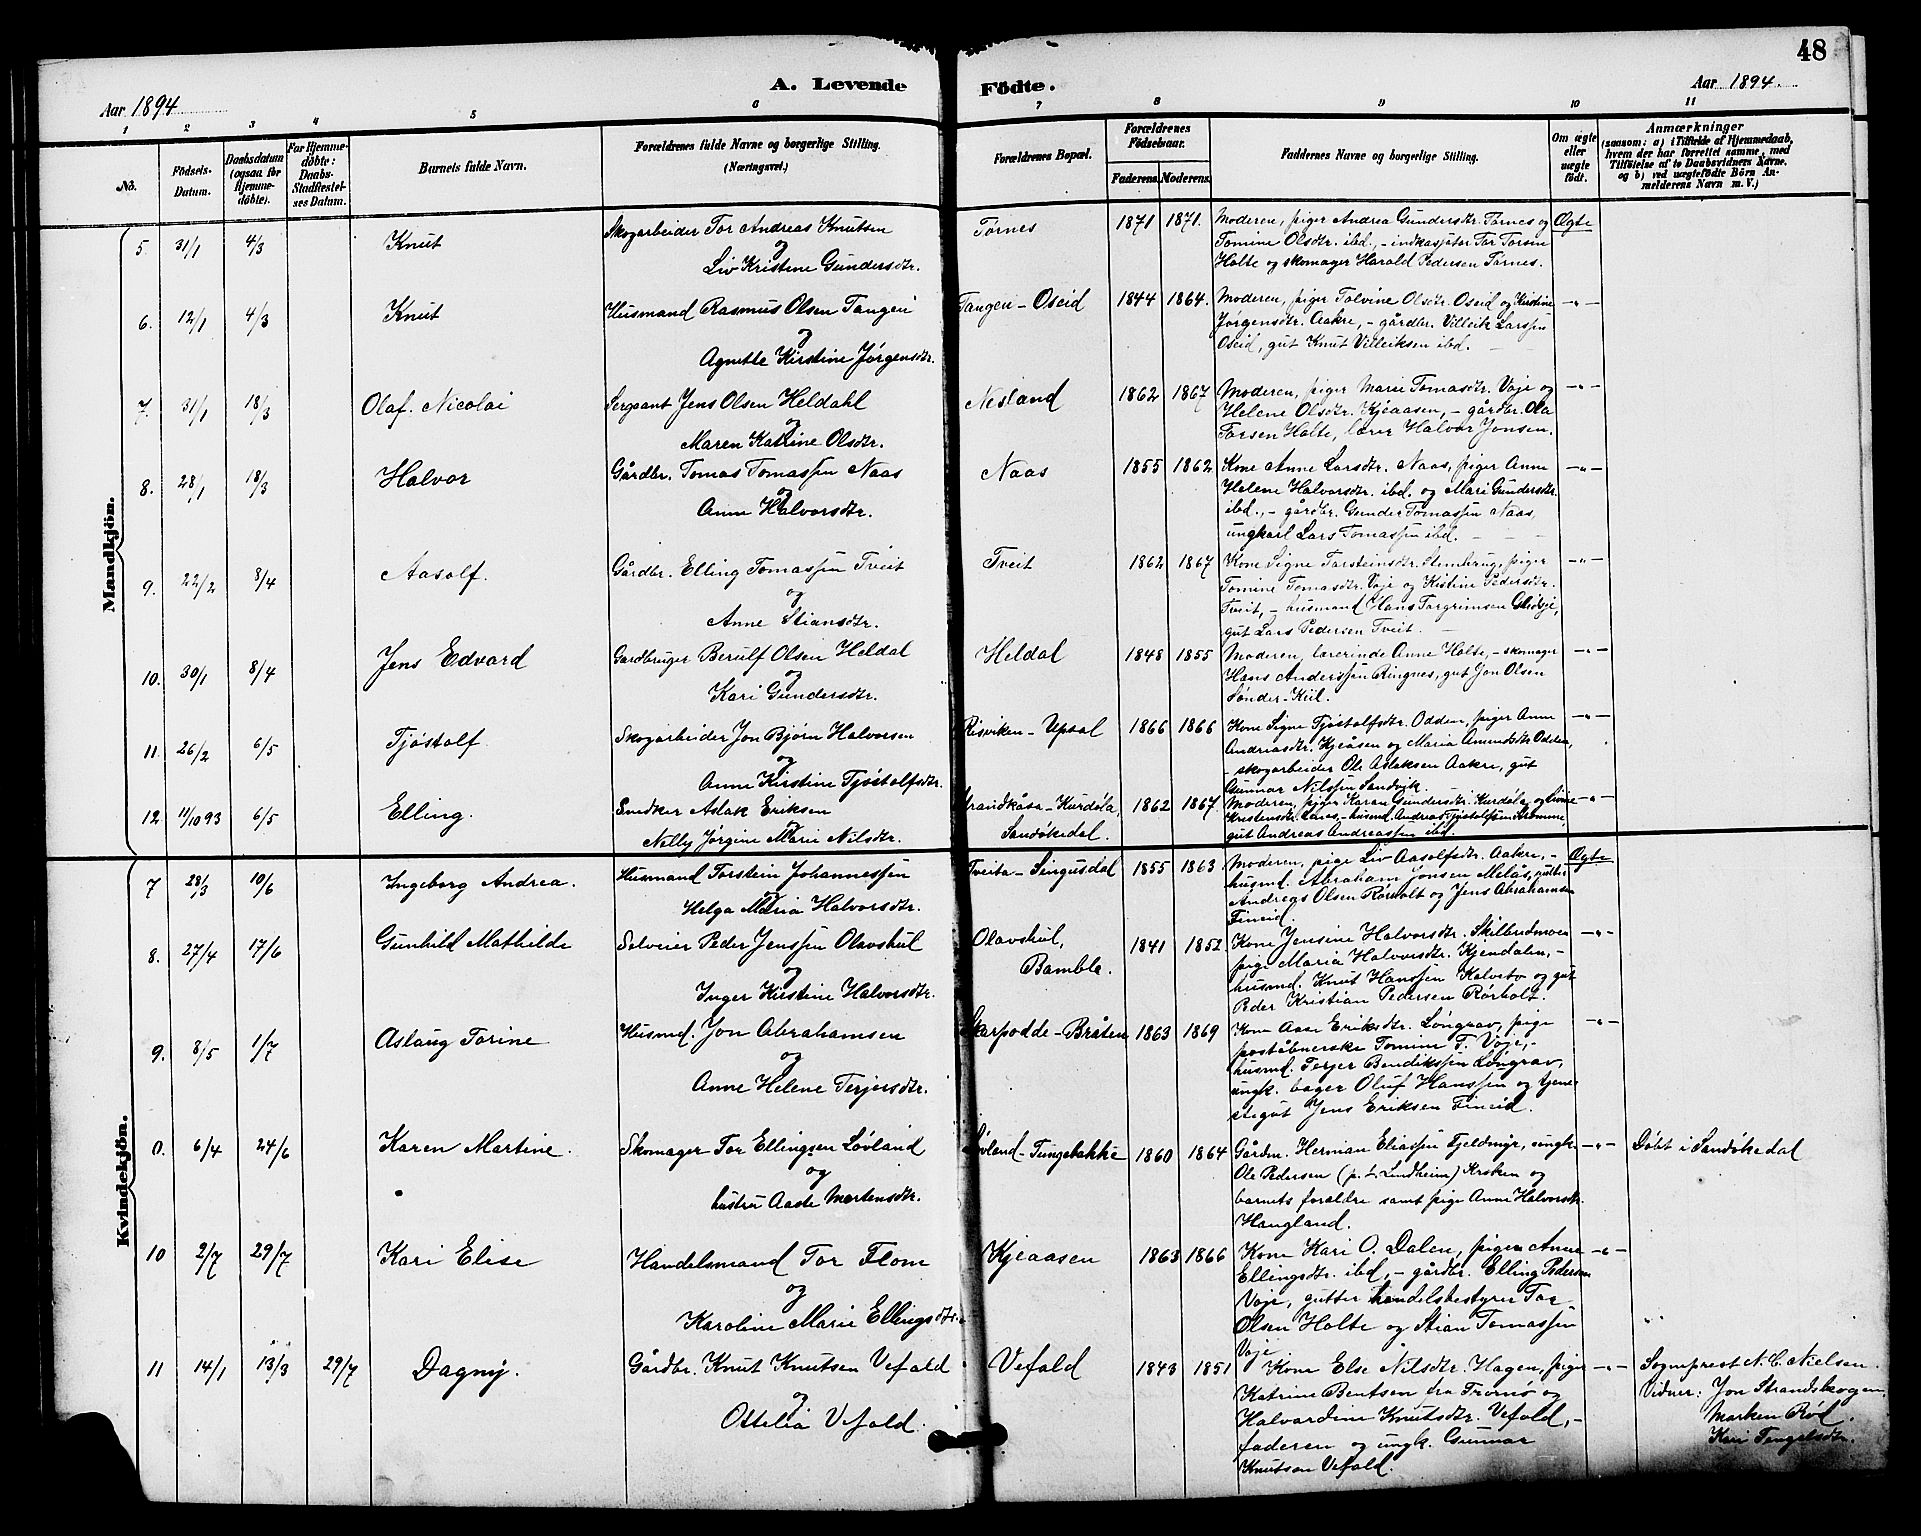 48
A. Levende Födte.
Aar 1894
Aar 1894.
1 2 3 4 5 6 7 8 9 10 11
No.
Födsels-Datum.
Daabsdatum (ogsaa for Hjemmedöbte).
For Hjemmedöbte: Daabs-Stadfestelses Datum.
Barnets fulde Navn.
Forældrenes fulde Navne og borgerlige Stilling. (Næringsvei.)
Forældrenes Bopæl.
Forældrenes Födselsaar.
Faderens. Moderens.
Faddernes Navne og borgerlige Stilling.
Om ægte eller uægte födt.
Anmærkninger
(saasom: a) i Tilfælde af Hjemmedaab, hvem der har forrettet samme, med Tilföielse af to Daabsvidners Navne, og b) ved uægtefödte Börn Anmelderens Navn m. V.)
Mandkjön.
5. 31/1 4/3 Knut
Skogarbeider Tor Andreas Knutsen
og
Liv Kristine Gundersdtr.
Tørnes 1871 1871.
Moderen, piger Andrea Gundersdtr. Tørnes og
Tomine Olsdtr. ibd., - indkasjøter Tor Torsen
Holte og skomager Harald Pedersen Tørnes.
Ægte
6. 12/1 4/3 Knut
Husmand Rasmus Olsen Tangen
og
Agnethe Kirstine Jørgensdtr.
Tangen - Oseid 1844 1864.
Moderen, piger Tolvine Olsdtr. Oseid og Kristine
Jørgensdtr. Aakre, - gårdbr. Villeik Larssen
Oseid, gut Knut Villeiksen ibd.
-"-
7. 31/1 18/3 Olaf. Nicolai
Sergeant Jens Olsen Heldahl
og
Maren Katrine Olsdtr.
Nesland 1862 1867
Moderen, piger Marie Tomasdtr. Voje og
Helene Olsdtr. Kjeaasen, - gårdbr. Ola
Torsen Holte, lærer Halvor Jonsen.
-"-
8. 28/1 18/3 Halvor
Gårdbr. Tomas Tomassen Naas
og
Anne Halvorsdtr.
Naas 1855 1862
Kone Anne Larsdtr. Naas, piger Anne
Helene Halvorsdtr. ibd. og Mari Gundersdtr.
ibd., - gårdbr. Gunder Tomassen Naas,
ungkarl Lars Tomassen ibd.
-"-
9. 22/2 8/4 Aasolf.
Gårdbr. Elling Tomassen Tveit
og
Anne Stiansdtr.
Tveit 1862 1867
Kone Signe Torsteinsdtr. Stenhrug, piger
Tomine Tomasdtr. Voje og Kistine Pedersdtr.
Tveit, - husmand Hans Torgrimsen
gut Lars Pedersen Tveit.
-"-
10. 30/1 8/4 Jens Edvard
Gardbruger Berulf Olsen Heldal
og
Kari Gundersdtr.
Heldal 1848 1855
Moderen, lærerinde Anne Holte, - skomager
Hans Anderssen Ringnes, gut Jon Olsen
Sønder-Kiil.
-"-
11. 26/2 6/5 Tjøstolf
Skogarbeider Jon Bjørn Halvorsen
og
Anne Kirstine Tjøstolfsdtr.
Risviken - Upsal 1866 1866
Kone Signe Tjøstolfsdtr. Odden, piger Anne
Andreasdtr. Kjeåsen og Maria Amundsdtr. Odden,
- skogarbeider Ole Aslaksen Aakre, gut
Gunnar Nilssen Sandvik.
-"-
12 11/10 93 6/5 Elling.
Snedker Aslak Eriksen
og
Nelly Jørgine Marie Nilsdtr.
Strandkåsa - Kurdøla, 1862 1867.
Sandøkedal.
Moderen, piger Karen Gundersdtr. Kurdøla og
Kristensdtr. - husmd. Andreas Tjøstolfsen Kromme,
gut Andreas Andreassen ibd.
-"-
Kvindekjön.
7 28/3 10/6 Ingeborg Andrea.
Husmand Torstein Johannessen
og
Helga Maria Halvorsdtr.
Tveita - Singusdal 1855 1863
Moderen, pige Liv Aasolfsdtr. Aakre, -
husmd. Abraham Jonsen Melås, gutter
Andreas Olsen Rørholt og Jens Abrahamsen
Fineid.
Ægte
8. 27/4 17/6 Gunhild Mathilde
Selveier Peder Jenssen Olavshul
og
Inger Kirstine Halvorsdtr.
Olavshul, 1841 1852
Bamble.
Kone Jensine Halvorsdtr. Skilbudmoen
pige Maria Halvorsdtr. Kjendalen, -
husmd. Knut Hanssen Kalveto og gut
Peder Kristian Pedersen Rørholt.
-"-
9. 8/5 1/7 Aslaug Torine
Husmd. Jon Abrahamsen
og
Anne Helene Terjersdtr.
Skarpodde - Bråten 1863 1869
Kone Aase Eriksdtr. Løngrav, pige
poståbnerske Tomine T. Voje, -
husmd. Terjer Bendikssen Løngrav,
ungk. bager Oluf Hanssen og tjene-
stegut Jens Eriksen Fineid.
-"-
0. 6/4 24/6 Karen Martine.
Skomager Tor Ellingsen Løvland
og
hustru Aaste Mortensdtr.
Løvland - Tungebakke 1860 1864
Gårdm. Herman Eliassen Fjeldmyr, ungk.
Ole Pedersen (p. t. Lindheim) Krsken og
barnets forældre samt pige Anne Halvorsdtr.
Haugland.
-"- Døbt i Sandøkedal
10 2/7 29/7 Kari Elise
Handelsmand Tor Flom
og
Karoline Marie Ellingsdtr.
Kjeaasen 1863 1866
Kone Kari O. Dalen, pigen Anne
Ellingsdtr. ibd., - gårdbr. Elling Pedersen
Voje, gutter handelsbestyrer Tor
Olsen Holte og Stian Tomassen
Voje
-"-
11 14/1 13/3 29/7 Dagny.
Gårdbr. Knut Knutsen Vefald
og
Ottelia Vefald.
Vefald 1843 1851
Kone Else Nilsdtr. Hagen, piger
Katrine Bentsen fra Tromø og
Halvardine Knutsdtr. Vefald, -
faderen og ungk. Gunnar
Knutson Vefald.
-"- Sogneprest N. C. Nielsen.
Vidner: Jon Strandskogen
Marken Røl.
Kari Tengelsdtr.